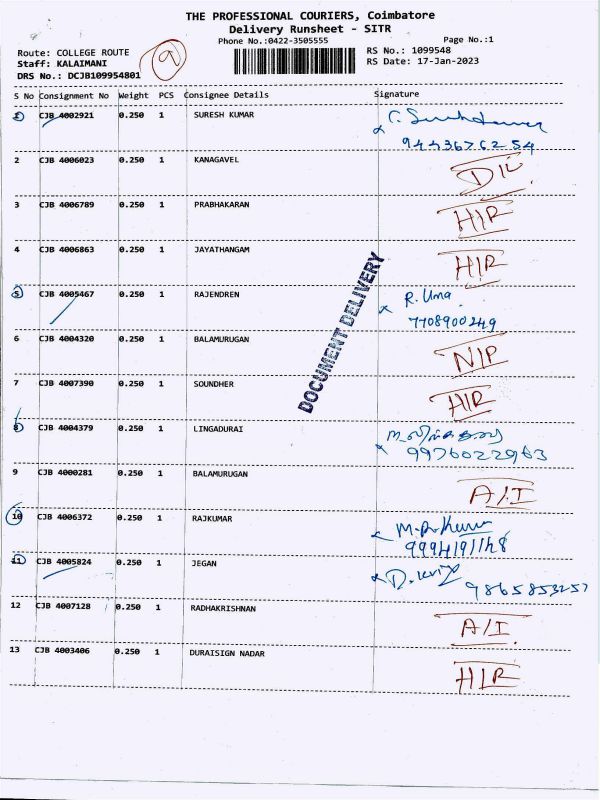 THE PROFESSIONAL COURIERS, Coimbatore
Delivery Runsheet - SITR
Phone No.:0422-3505555 Page No.:1
Route: COLLEGE ROUTE RS No.: 1099548
Staff: KALAIMANI RS Date: 17-Jan-2023
DRS No.: DCJB109954801
S No Consignment No Weight PCS Consignee Details Signature
1 CJB 4002921 0.250 1 SURESH KUMAR
9443676254
2 CJB 4006023 0.250 1 KANAGAVEL
3 CJB 4006789 0.250 1 PRABHAKARAN H/R
4 CJB 4006863 0.250 1 JAYATHANGAM H/R
5 CJB 4005467 0.250 1 RAJENDREN R. Uma
7708900249
6 CJB 4004320 0.250 1 BALAMURUGAN N/P
7 CJB 4007390 0.250 1 SOUNDHER H/R
8 CJB 4004379 0.250 1 LINGADURAI
9976022963
9 CJB 4000281 0.250 1 BALAMURUGAN A/I
10 CJB 4006372 0.250 1 RAJKUMAR
9994191148
11 CJB 4005824 0.250 1 JEGAN 9865853257
12 CJB 4007128 0.250 1 RADHAKRISHNAN A/I
13 CJB 4003406 0.250 1 DURAISIGN NADAR H/R
DOCUMENT DELIVERY